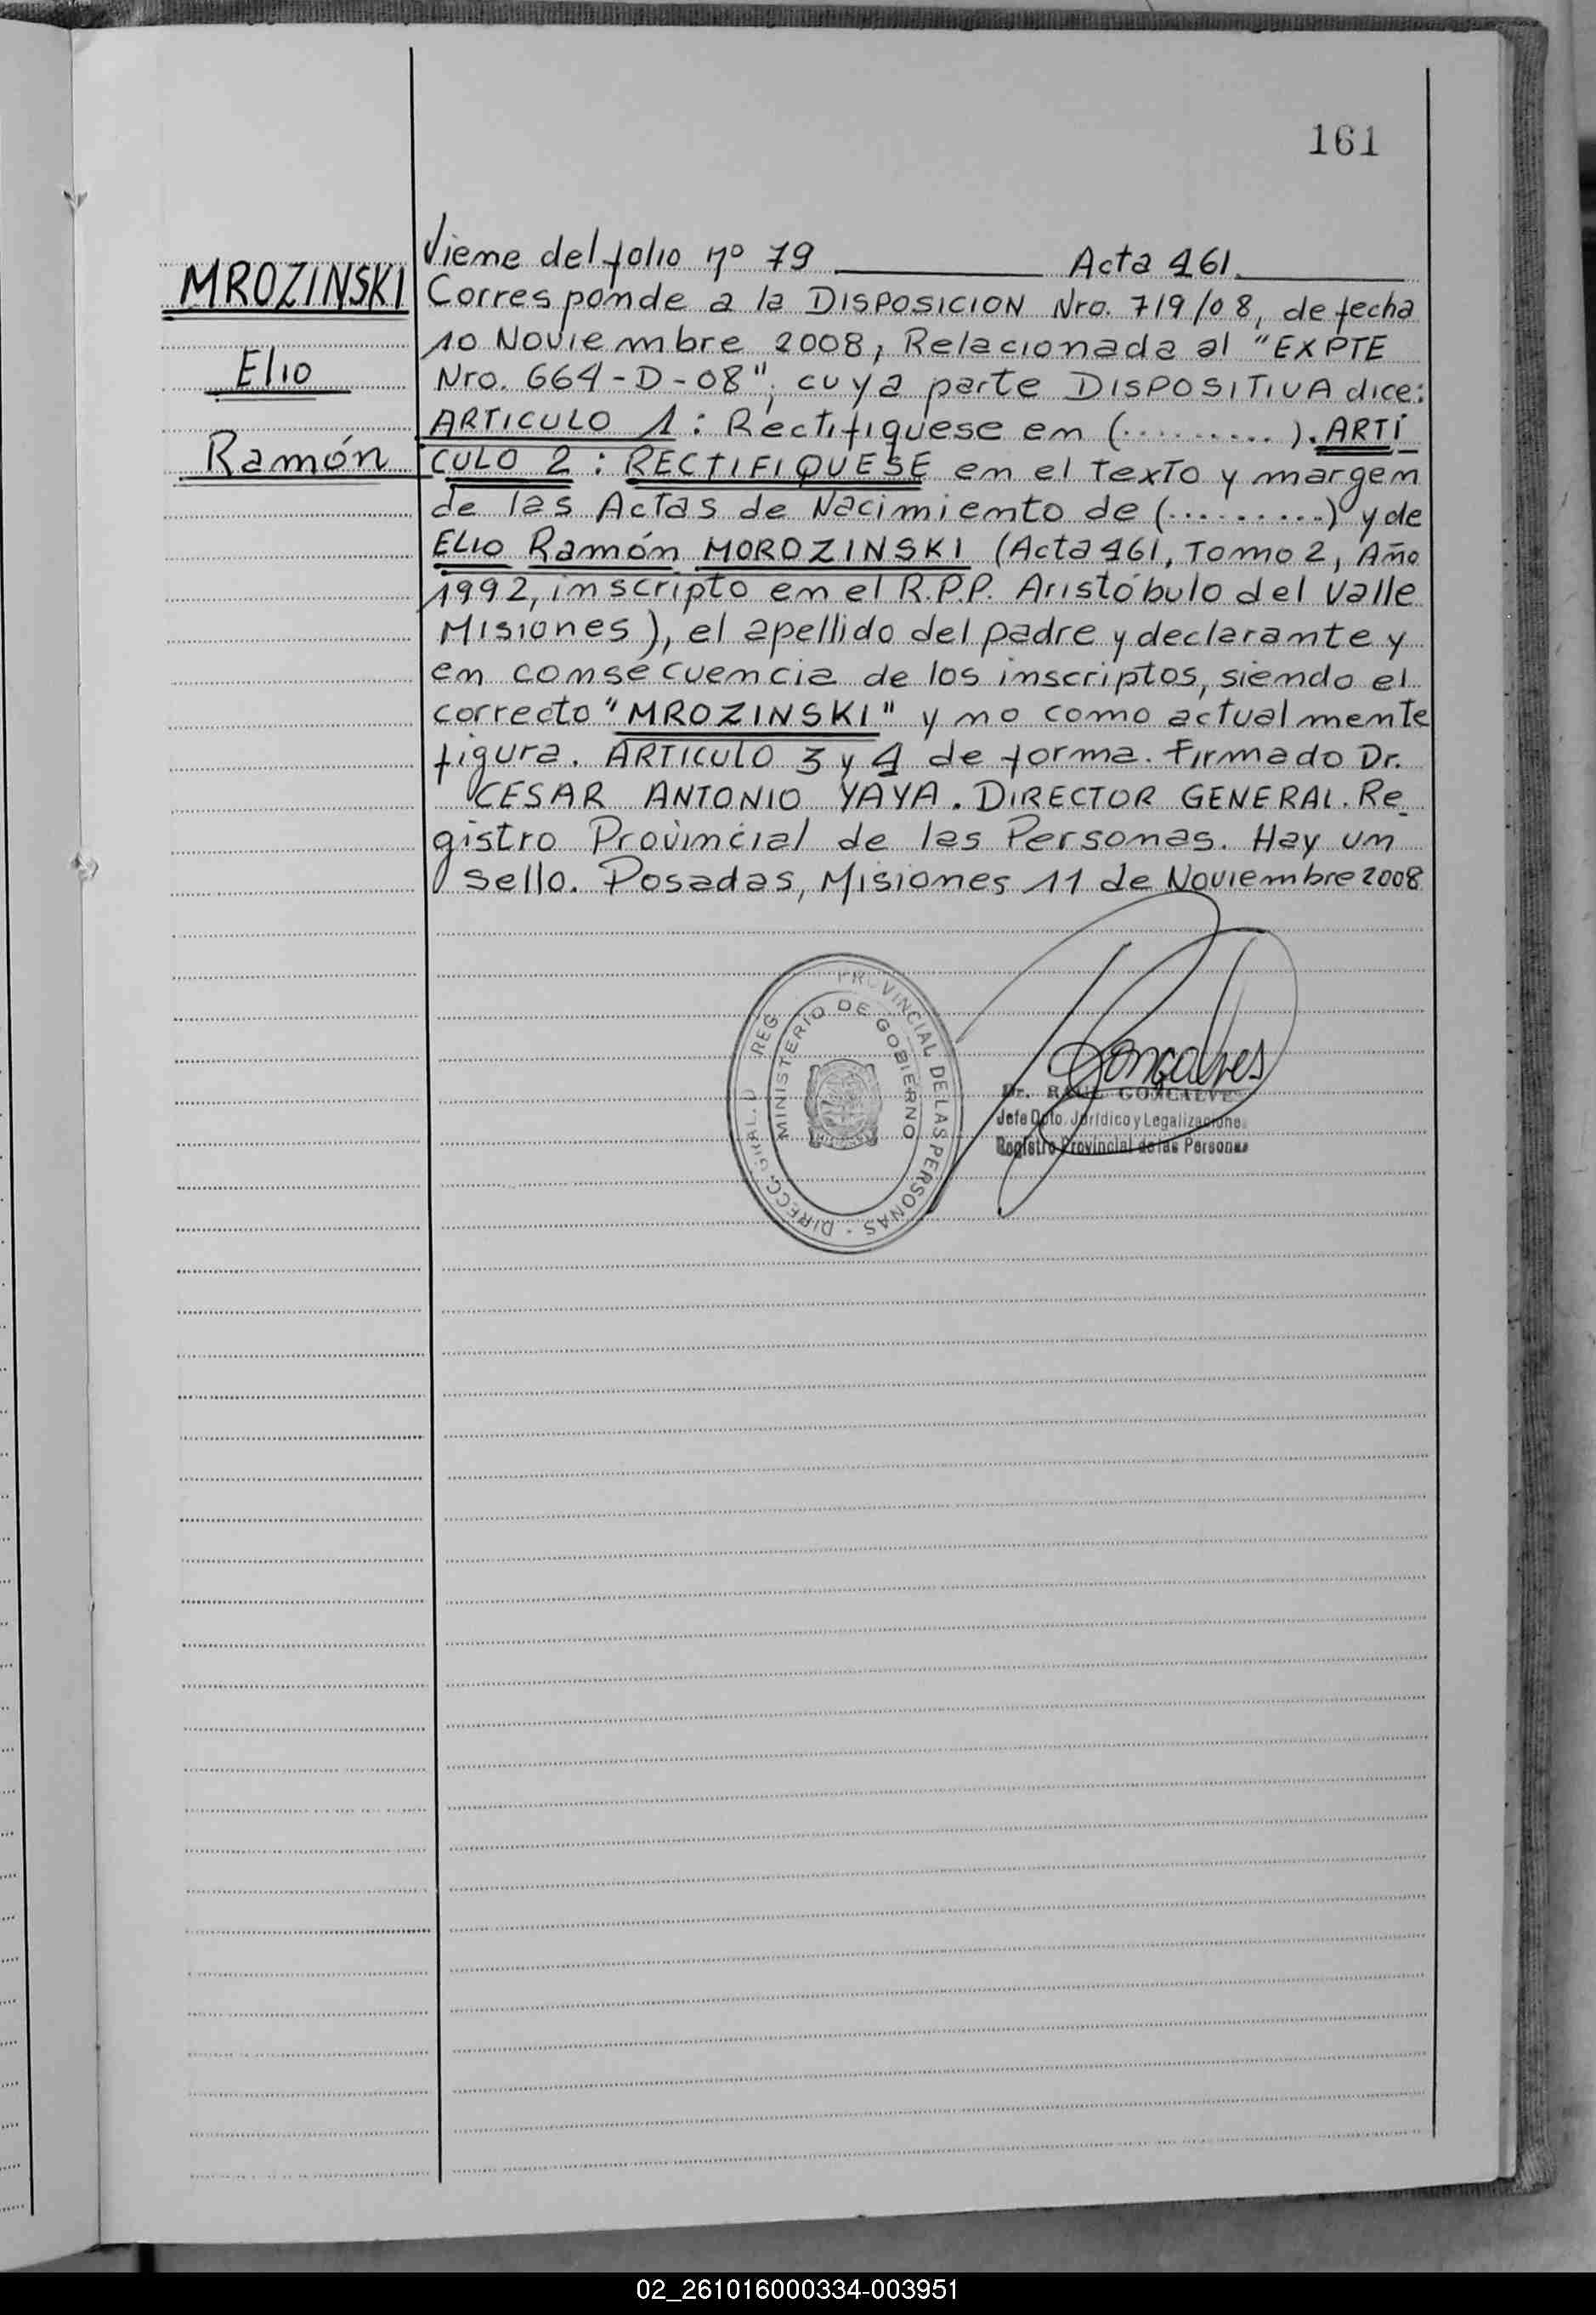 161
Viene del folio nº 79 Acta 461
MROZINSKI
Corresponde a la DISPOSICION Nro. 719/08, de fecha
10 Noviembre 2008, Relacionada al "EXPTE
Elio
Nro. 664-D-08", cuya parte DISPOSITIVA dice:
ARTICULO 1: Rectifiquese en (.........). ARTÍ
Ramón
CULO 2: RECTIFIQUESE en el texto y margen
de las Actas de Nacimiento de (.........) y de
ELIO Ramón MOROZINSKI (Acta 461, Tomo 2, Año
1992, inscripto en el R.P.P. Aristóbulo del Valle
Misiones), el apellido del padre y declarante y
en consecuencia de los inscriptos, siendo el
correcto "MROZINSKI" y no como actualmente
figura. ARTICULO 3 y 4 de forma. Firmado Dr.
CESAR ANTONIO YAYA. DIRECTOR GENERAL. Re
gistro Provincial de las Personas. Hay un
sello. Posadas, Misiones 11 de Noviembre 2008
DIRECC. GRAL. D REG. PROVINCIAL DE LAS PERSONAS -
MINISTERIO DE GOBIERNO
Gonçalves
Dr. RAUL GONCALVES
Jefe Dpto. Jurídico y Legalizaciones
Registro Provincial de las Personas
02_261016000334-003951